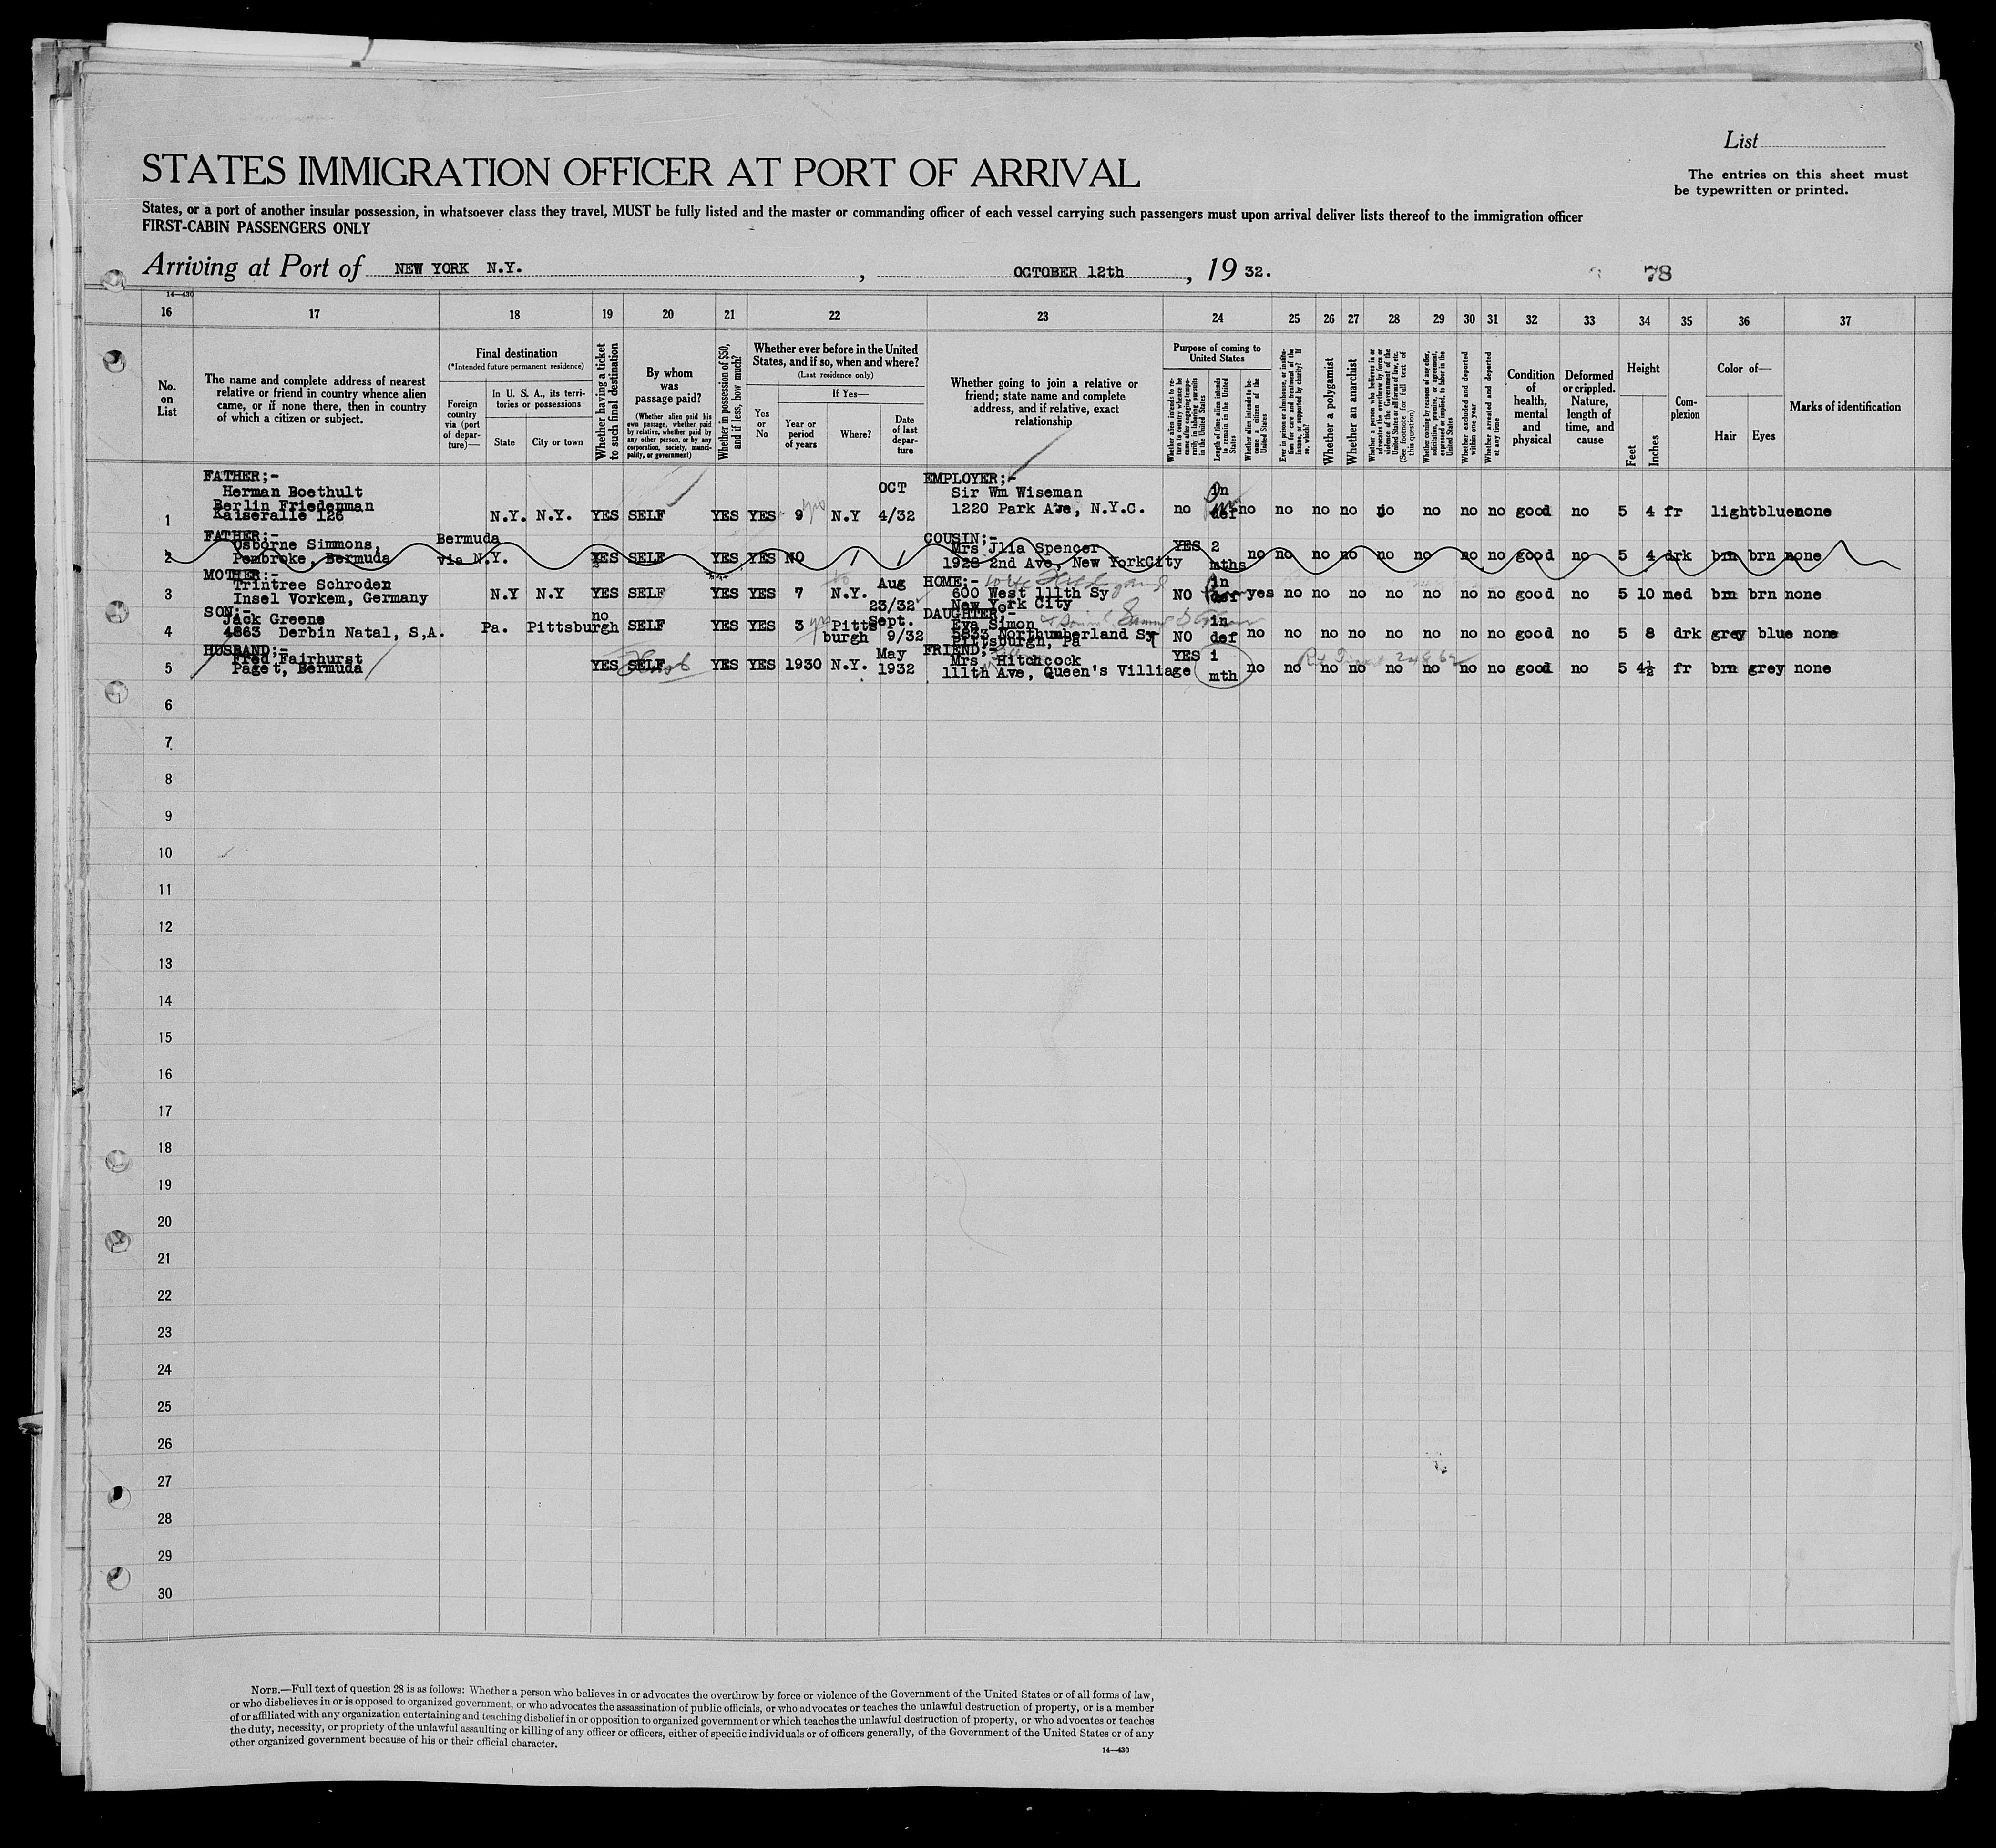 List
STATES IMMIGRATION OFFICER AT PORT OF ARRIVAL
The entries on this sheet must
be typewritten or printed.
States, or a port of another insular possession, in whatsoever class they travel, MUST be fully listed and the master or commanding officer of each vessel carrying such passengers must upon arrival deliver lists thereof to the immigration officer
FIRST-CABIN PASSENGERS ONLY
Arriving at Port of NEW YORK N.Y., OCTOBER 12th, 19 32.
78
14—430
16 17 18 19 20 21 22 23 24 25 26 27 28 29 30 31 32 33 34 35 36 37
No. on List
The name and complete address of nearest relative or friend in country whence alien came, or if none there, then in country of which a citizen or subject.
Final destination
(*Intended future permanent residence)
Foreign country via (port of departure)—
In U. S. A., its territories or possessions
State
City or town
Whether having a ticket to such final destination
By whom was passage paid?
(Whether alien paid his own passage, whether paid by relative, whether paid by any other person, or by any corporation, society, municipality, or government)
Whether in possession of $50, and if less, how much?
Whether ever before in the United States, and if so, when and where?
(Last residence only)
Yes or No
If Yes—
Year or period of years
Where?
Date of last departure
Whether going to join a relative or friend; state name and complete address, and if relative, exact relationship
Purpose of coming to United States
Whether alien intends to return to country whence he came after engaging temporarily in laboring pursuits in the United States
Length of time alien intends to remain in the United States
Whether alien intends to become a citizen of the United States
Ever in prison or almshouse, or institution for care and treatment of the insane, or supported by charity? If so, which?
Whether a polygamist
Whether an anarchist
Whether a person who believes in or advocates the overthrow by force or violence of the Government of the United States or all forms of law, etc. (See footnote for full text of this question)
Whether coming by reasons of any offer, solicitation, promise, or agreement, expressed or implied, to labor in the United States
Whether excluded and deported within one year
Whether arrested and deported at any time
Condition of health, mental and physical
Deformed or crippled. Nature, length of time, and cause
Height
Feet
Inches
Complexion
Color of—
Hair
Eyes
Marks of identification
1 FATHER;- Herman Boethult Berlin Friedenman Kaiseralle 126 N.Y. N.Y. YES SELF YES YES 9 yrs N.Y OCT 4/32 EMPLOYER;- Sir Wm Wiseman 1220 Park Ave, N.Y.C. no in def no no no no no no no no good no 5 4 fr light blue none
2 FATHER;- Osborne Simmons, Pembroke, Bermuda Bermuda via N.Y. YES SELF YES YES NO / / COUSIN;- Mrs Jlia Spencer 1928 2nd Ave, New YorkCity YES 2 mths no no no no no no no no good no 5 4 drk brn brn none
3 MOTHER;- Trintree Schroden Insel Vorkem, Germany N.Y N.Y YES SELF YES YES 7 N.Y. Aug 23/32 HOME;- 600 West 111th Sy New York City NO in def yes no no no no no no no good no 5 10 med brn brn none
4 SON;- Jack Greene 4863 Derbin Natal, S,A. Pa. Pittsburgh no SELF YES YES 3 yrs Pittsburgh Sept. 9/32 DAUGHTER;- Eva Simon 5833 Northumberland Sy Pittsburgh, Pa NO in def no no no no no no no no good no 5 8 drk grey blue none
5 HUSBAND;- Fred Fairhurst Paget, Bermuda YES SELF YES YES 1930 N.Y. May 1932 FRIEND;- Mrs Hitchcock 111th Ave, Queen's Villiage YES 1 mth no no no no no no no no good no 5 4½ fr brn grey none
6
7
8
9
10
11
12
13
14
15
16
17
18
19
20
21
22
23
24
25
26
27
28
29
30
NOTE.—Full text of question 28 is as follows: Whether a person who believes in or advocates the overthrow by force or violence of the Government of the United States or of all forms of law,
or who disbelieves in or is opposed to organized government, or who advocates the assassination of public officials, or who advocates or teaches the unlawful destruction of property, or is a member
of or affiliated with any organization entertaining and teaching disbelief in or opposition to organized government or which teaches the unlawful destruction of property, or who advocates or teaches
the duty, necessity, or propriety of the unlawful assaulting or killing of any officer or officers, either of specific individuals or of officers generally, of the Government of the United States or of any
other organized government because of his or their official character.
14—430